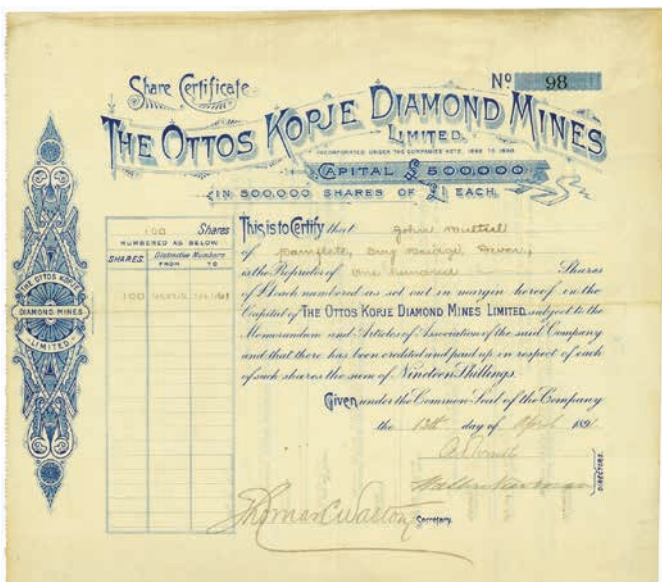 Share Certificate
No 98
THE OTTOS KOPJE DIAMOND MINES
LIMITED.
INCORPORATED UNDER THE COMPANIES ACTS, 1862 TO 1890.
CAPITAL £500,000
IN 500,000 SHARES OF £1 EACH.
100 Shares
NUMBERED AS BELOW
SHARES. Distinctive Numbers
FROM TO
100
This is to Certify that John
of
is the Proprietor of one hundred Shares
of £1 each numbered as set out in margin hereof in the
Capital of THE OTTOS KOPJE DIAMOND MINES LIMITED, subject to the
Memorandum and Articles of Association of the said Company
and that there has been credited and paid up in respect of each
of such shares the sum of Nineteen Shillings.
Given under the Common Seal of the Company
the 13th day of April 1891
DIRECTORS.
Thomas C Walton Secretary.
THE OTTOS KOPJE
DIAMOND MINES
LIMITED